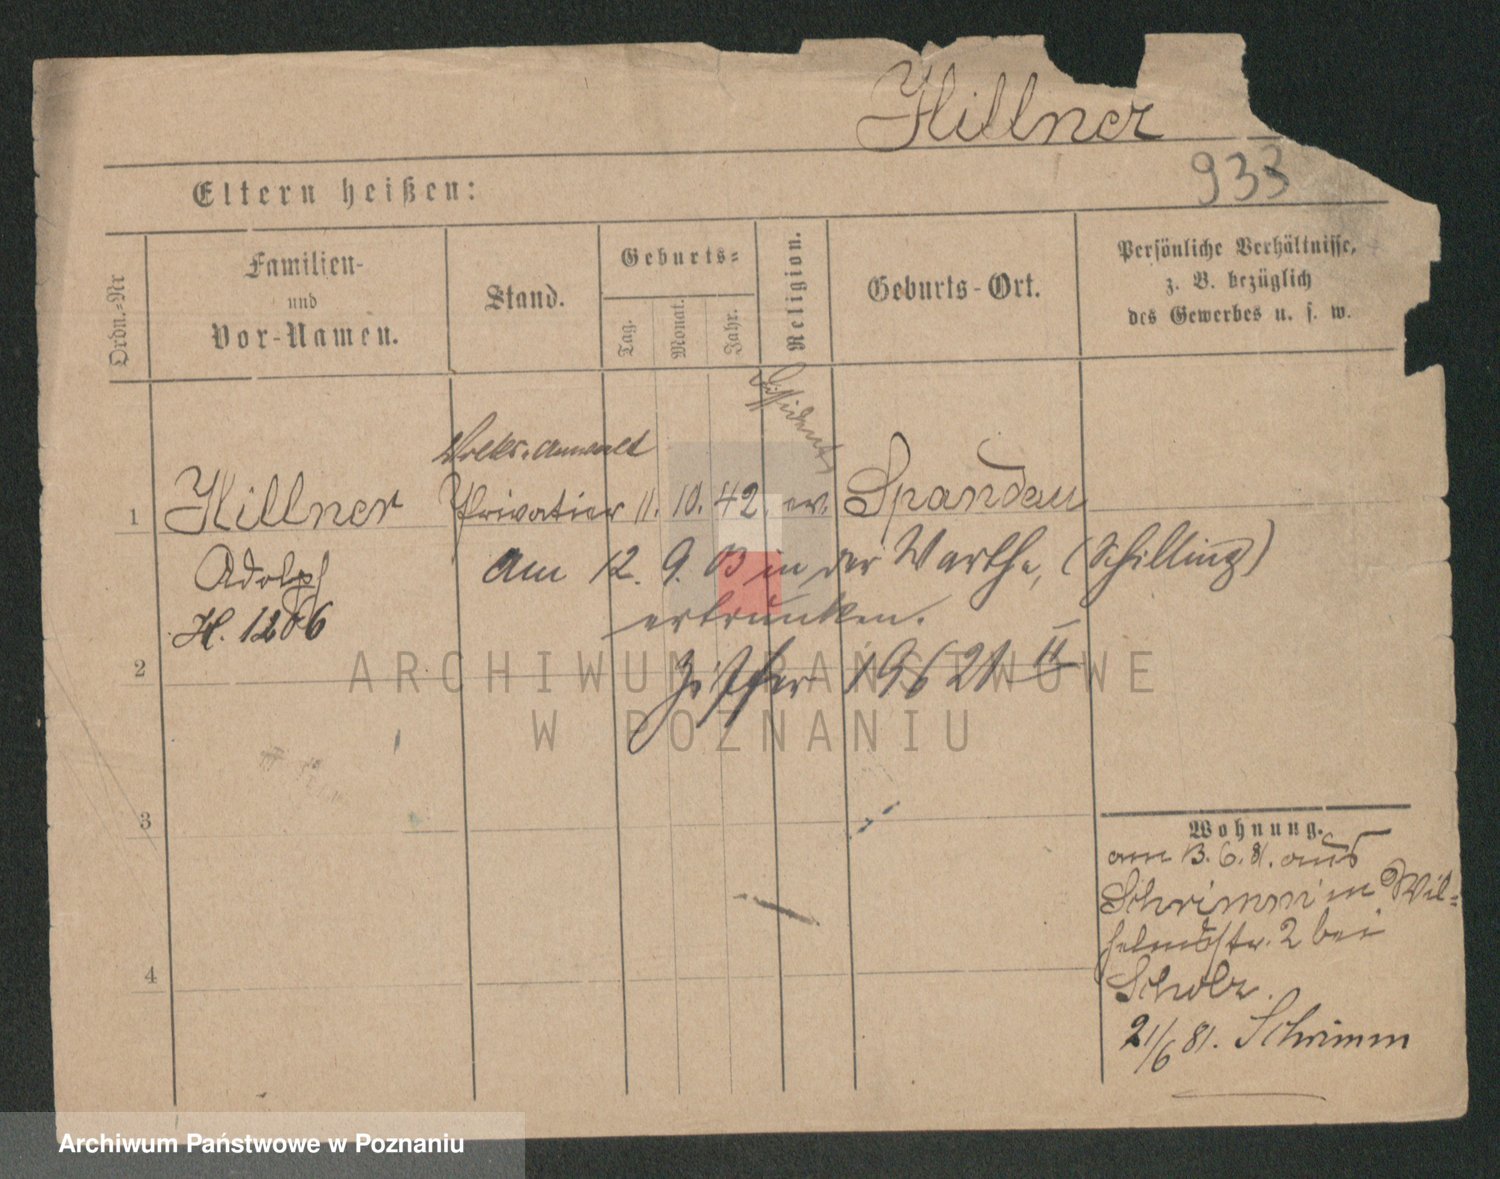 Hillner
933
Eltern heißen:
Ordn.-Nr
Familien-
und
Vor-Namen.
Stand.
Geburts-
Tag.
Monat.
Jahr.
Religion.
Geburts-Ort.
Persönliche Verhältnisse,
z. B. bezüglich
des Gewerbes u. s. w.
Dissident
Volks-Anwalt
1 Hillner Privatier 11. 10. 42. ev. Spandau
Adolph
am 12. 9. 03 in der Warthe, (Schilling)
H. 1286
ertrunken.
2
19621 II
ARCHIWUM PAŃSTWOWE
W POZNANIU
3
4
Wohnung.
am 13. 6. 81. aus
Schrimm in Wil-
helmsstr. 2 bei
Scholz.
21/6 81. Schrimm
Archiwum Państwowe w Poznaniu